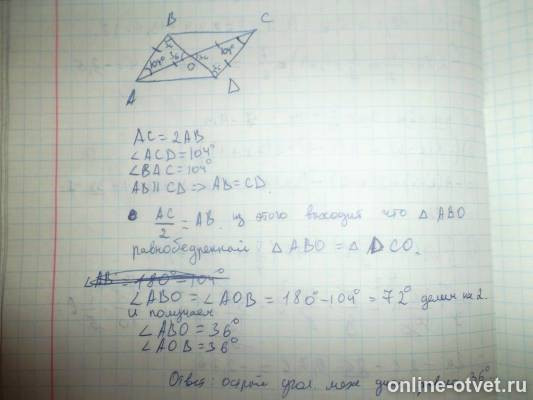 B
C
104°
36
O
104°
A
D
AC = 2AB
∠ACD = 104°
∠BAC = 104°
AB || CD => AB = CD.
AC/2 = AB. из этого выходит что △ ABO
равнобедренный: △ ABO = △ DCO.
= 180° - 104°
∠ABO = ∠AOB = 180° - 104° = 72° делим на 2.
и получаем
∠ABO = 36°
∠AOB = 36°
Ответ: острый угол меж 36°
online-otvet.ru